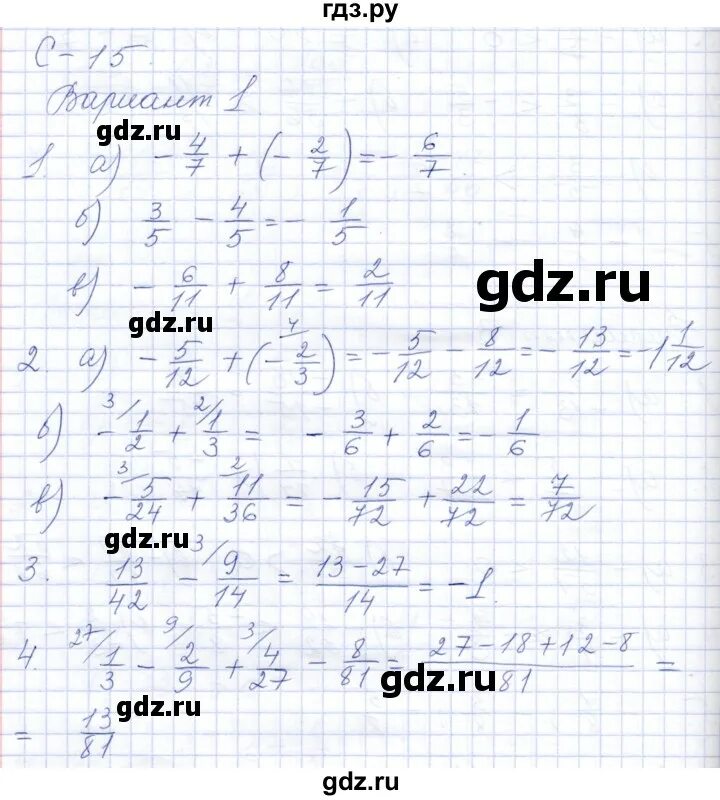 гдз.ру
С-15.
Вариант 1.
gdz.ru
1. а) - 4/7 + (- 2/7) = - 6/7
б) 3/5 - 4/5 = - 1/5
в) - 6/11 + 8/11 = 2/11
gdz.ru
gdz.ru
2 а) - 5/12 + (- 2/3)^4/ = - 5/12 - 8/12 = - 13/12 = -1 1/12
б) 3/ - 1/2 + 2/ 1/3 = - 3/6 + 2/6 = - 1/6
в) 3/ - 5/24 + 2/ 11/36 = - 15/72 + 22/72 = 7/72
gdz.ru
3. 13/42 - 3/ 9/14 = 13-27/14 = -1.
4. 27/ 1/3 - 9/ 2/9 + 3/ 4/27 - 8/81 = 27-18+12-8/81 =
gdz.ru
gdz.ru
= 13/81
gdz.ru